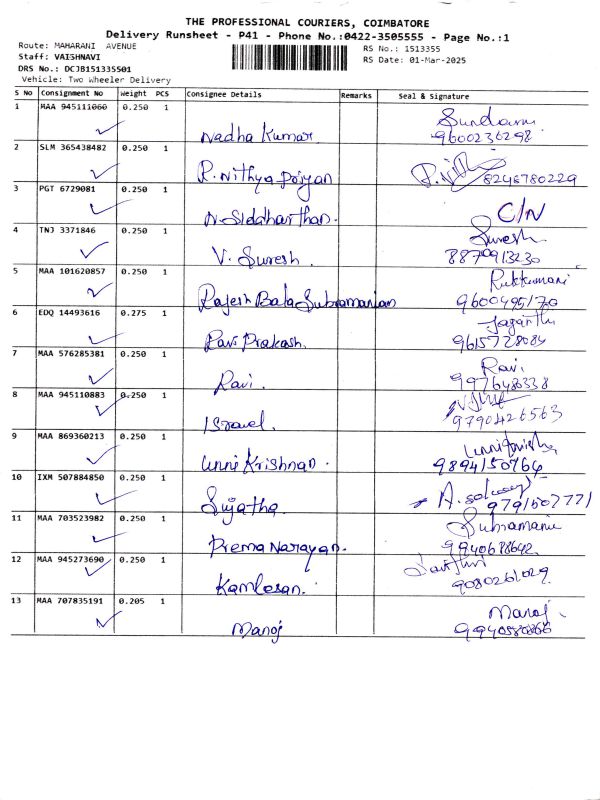 THE PROFESSIONAL COURIERS, COIMBATORE
Delivery Runsheet - P41 - Phone No.:0422-3505555 - Page No.:1
Route: MAHARANI AVENUE
RS No.: 1513355
Staff: VAISHNAVI
RS Date: 01-Mar-2025
DRS No.: DCJB151335501
Vehicle: Two Wheeler Delivery
S No Consignment No Weight PCS Consignee Details Remarks Seal & Signature
1 MAA 945111060 0.250 1
Nadha Kumar Sundari
9600236298
2 SLM 365438482 0.250 1
R. Nithya Poiyan 8248780229
3 PGT 6729081 0.250 1
N. Siddharthan. C/N
4 TNJ 3371846 0.250 1
V. Suresh. Suresh
8870913230
5 MAA 101620857 0.250 1
Rajesh Bala Subramanian Rukkumani
9600495170
6 EDQ 14493616 0.275 1
Ravi Prakash. 9615728084
7 MAA 576285381 0.250 1
Ravi. Ravi
997648338
8 MAA 945110883 0.250 1
Israel. 9790426563
9 MAA 869360213 0.250 1
Unni Krishnan. 9894150764
10 IXM 507884850 0.250 1
Sujatha. 9791507771
11 MAA 703523982 0.250 1
Prema Narayan. Subramani
9940678642
12 MAA 945273690 0.250 1
Kamlesan. 9080261029
13 MAA 707835191 0.205 1
Manoj Manoj.
9940580866